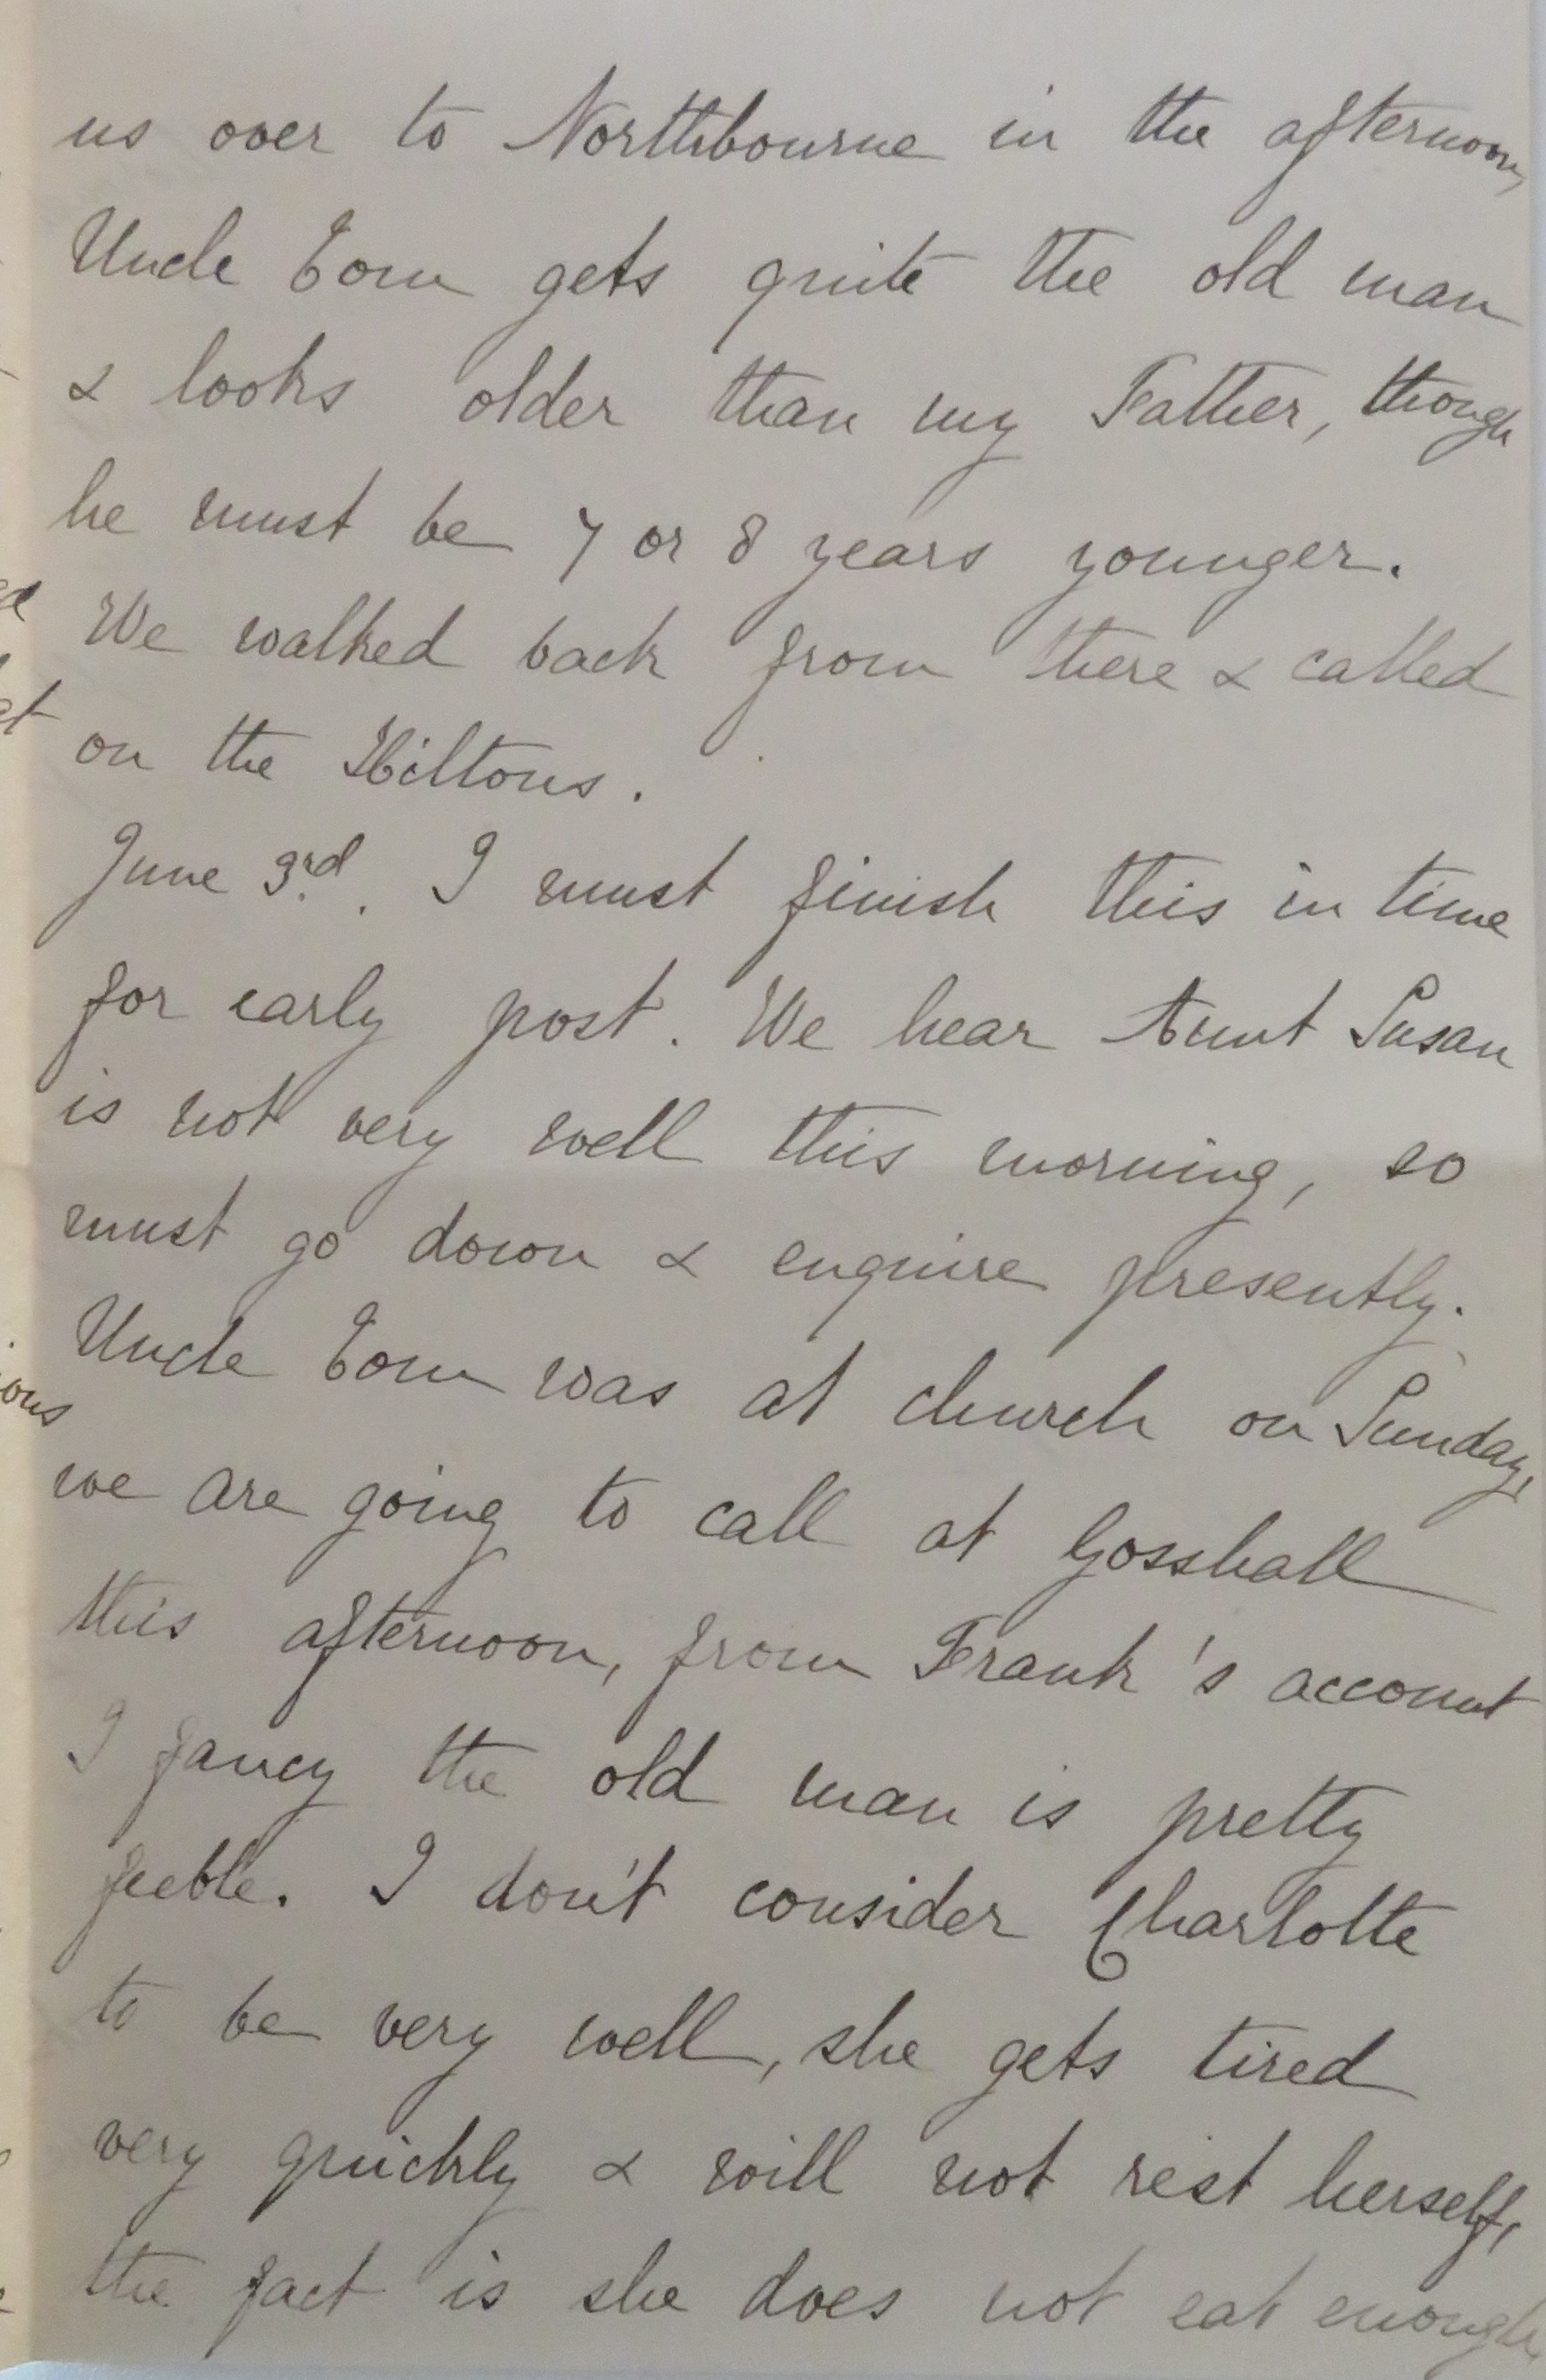 us over to Northbourne in the afternoon,
Uncle Tom gets quite the old man
& looks older than my Father, though
he must be 7 or 8 years younger.
We walked back from there & called
on the Hiltons.
June 3rd. I must finish this in time
for early post. We hear Aunt Susan
is not very well this morning, so
must go down & enquire presently.
Uncle Tom was at church on Sunday,
we are going to call at Gosshall
this afternoon, from Frank's account
I fancy the old man is pretty
feeble. I don't consider Charlotte
to be very well, she gets tired
very quickly & will not rest herself,
the fact is she does not eat enough